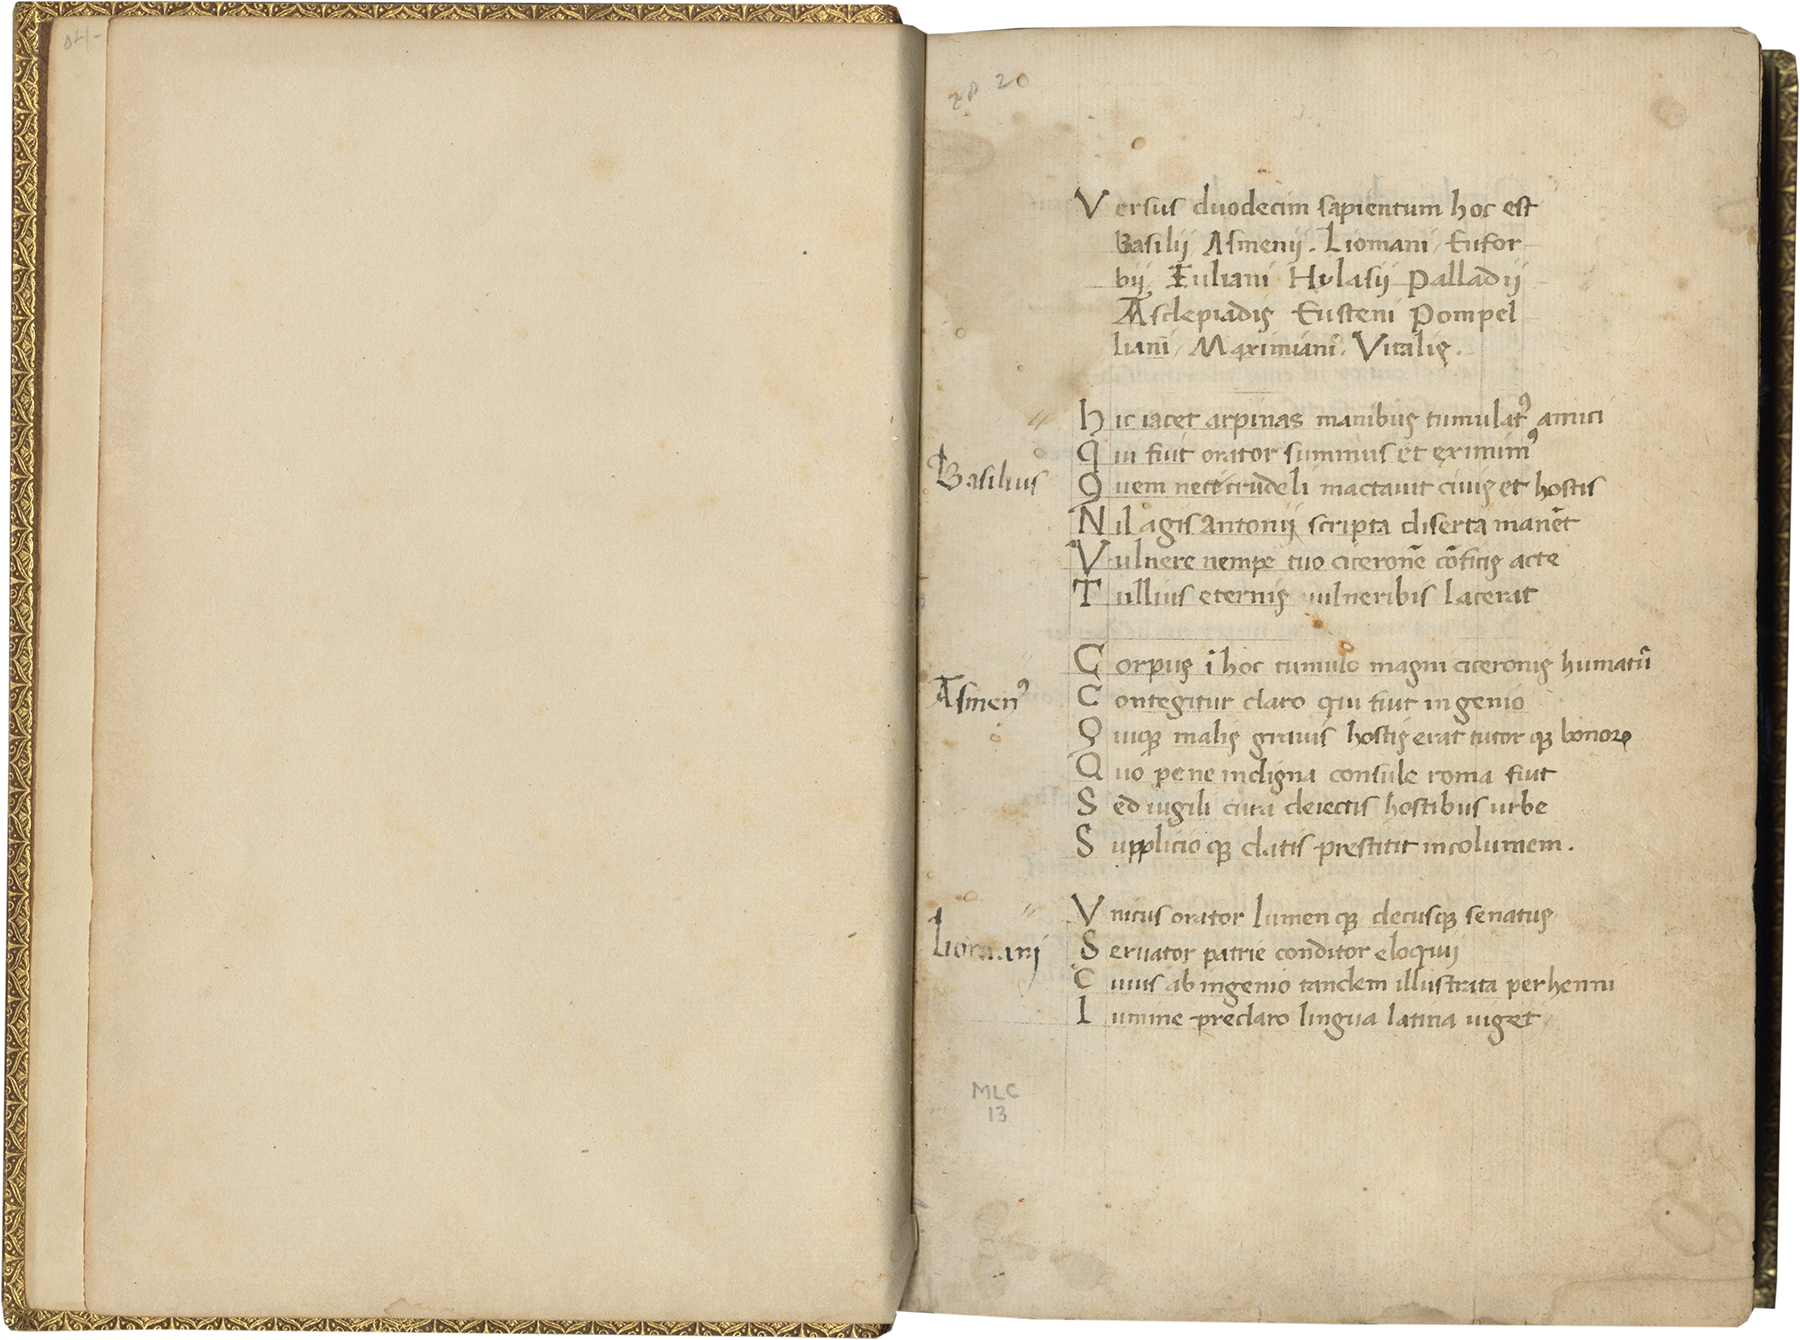 04/-
28 20
Versus duodecim sapientum hoc est
Basilij Asmenij . Liomani / Eufor
bij Iuliani Hylasij Palladij
Asclepiadis Eusteni Pompel
liani / Maximiani . Vitalis .
Basilius
Hic iacet arpinas manibus tumulatꝰ amici
Qui fuit orator summus et eximiꝰ
Quem nece crudeli mactauit ciuis et hostis
Nil agis Antonij scripta diserta manēt
Vulnere nempe tuo ciceronē cōficis acte
Tullius eternis uulneribis lacerat
Asmenꝰ
Corpus ī hoc tumulo magni ciceronis humatū
Contegitur claro qui fuit ingenio
Quiqꝫ malis grauis hostis erat tutor qꝫ bonoꝝ
Quo pene indigna consule roma fuit
Sed uigili cura deiectis hostibus urbe
Supplicio qꝫ datis prestitit incolumem .
Liomanj
Vnicus orator lumen qꝫ decusqꝫ senatus
Seruator patrie conditor eloquij
Cuius ab ingenio tandem illustrata perhenni
Lumine preclaro lingua latina uiget
MLC
13